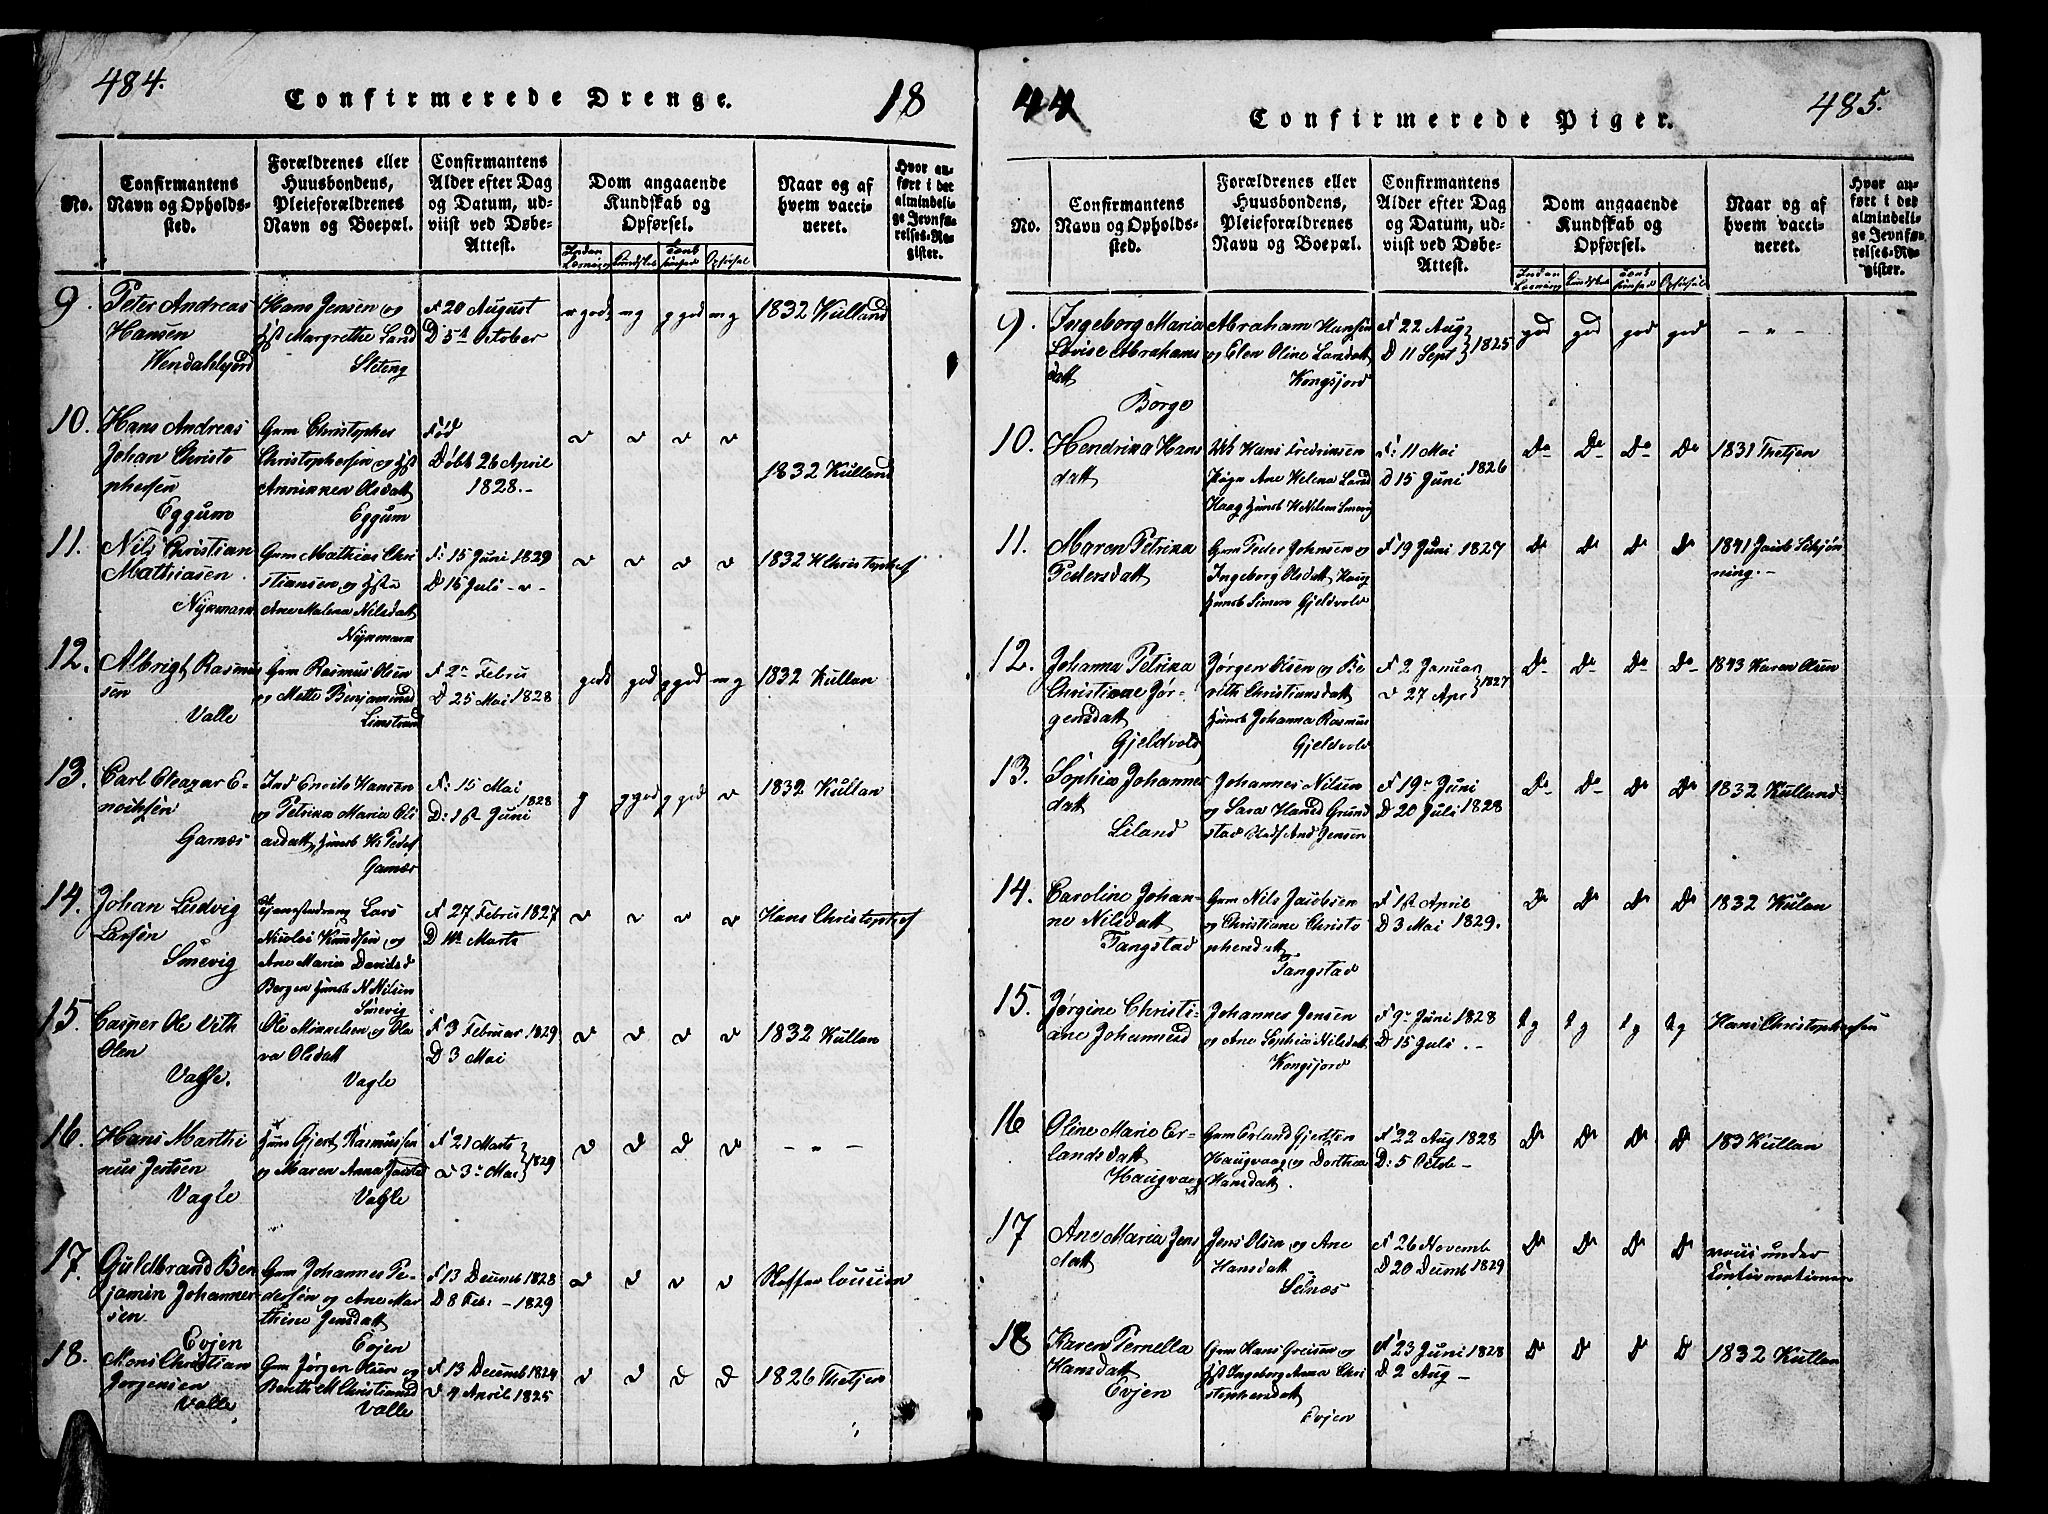 484.
Confirmerede Drenge.
18
No.
Confirmantens Navn og Opholdssted.
Forældrenes eller Huusbondens, Pleieforældrenes Navn og Boepæl.
Confirmantens Alder efter Dag og Datum, udviist ved Døbe-Attest.
Dom angaaende Kundskab og Opførsel.
Naar og af hvem vaccineret.
Hvor anført i det almindelige Jevnførelses-Register.
9.
Peter Andreas
Hansen
Hans Jensen og
Margrethe Land
Sleteng
F 20 August
D 5t October
1832 Kulland
10.
Hans Andreas
Johan Christo
phersen
Eggum
Gm Christopher
Christophersen og
Annikken Olsdatt
Eggum
Fød
Døbt 26 April
1828.-
v v v v
1832 Kulland
11.
Nils Christian
Mathiasen
Nykmark
Gm Mathias Chri
stiansen og
Ane Malena Nilsdatt
Nykmark
F: 15 Juni 1829
D 15 Juli - v -
v v v v
1832 HChristophsf
12.
Albrigt Rasmus
sen
Valle
Gm Rasmus Olsen
og Mette Benjaminsd
Limstrand
F 2 Febru
D 25 Mai 1828
godt god g god mg
1832 Kullan
13.
Carl Eleazar E-
nochsen
Garnæs
og Petrikka Maria Oli
Garnæs
F: 15 Mai 1828
D: 1st Juni
g g god g god v
1832 Kullan
14.
Johan Ludvig
Larsen
Smevig
Lars
Nicolai Knudsen og
Ane Maria Davidsd
Bergen N Nilsen
Smevig
F 27 Febru 1827
D Marts
v v v v
Hans Christophsf
15.
Casper Ole Vith
Olsen
Vagle.
Ole Mikkelsen og Ola
va Olsdatt
Vagle
F 3 Februar 1829
D 3 Mai
v v v v
1832 Kullan
16.
Hans Marthi
nus Jertsen
Vagle
Gjert Rasmussen
og Maren Anna
Vagle
F 21 Marts
v 3 Mai 1829
v v v v
- " -
17.
Guldbrand Ben
jamin Johannes-
sen
Evjen
Gm Johannes Pe-
dersen og Ane Mar
thine Jensdatt
Evjen
F 13 Decemb 1828
D 8 Feb: - 1829
v v v v
18.
Mons Christian
Jørgensen
Valle
Gm Jørgen Olsen og
Berith M Christiansd
Valle
F 13 Decemb 1824
v 4 April 1825
v v v v
1826 Thetjen
44
Confirmerede Piger.
485.
No.
Confirmantens Navn og Opholdssted.
Forældrenes eller Huusbondens, Pleieforældrenes Navn og Boepæl.
Confirmantens Alder efter Dag og Datum, udviist ved Døbe-Attest.
Dom angaaende Kundskab og Opførsel.
Naar og af hvem vaccineret.
Hvor anført i det almindelige Jevnførelses-Register.
9.
Ingeborg Maria
Lovise Abrahams
datt
Borge
Abraham Hansen
og Elen Oline Larsdatt
Kongsjord
F 22 Aug
D 11 Sept 1825
god god god god
- " -
10.
Hendrikka Hans
datt
Hans Fredriksen
Ane Helena Land
Haag H Nilsen Smevig
F: 11 Mai
D 15 Juni 1826
Do Do Do Do
1831 Thetjen
11.
Maren Petrikka
Pedersdatt
Gm Peder Johnsen og
Ingeborg Olsdatt Haug
Simon Gjeldvold
F 19 Juni 1827
Do Do Do Do
1841 Jacob
ning.-
12.
Johanna Petrikka
Christiane Jør-
gensdatt
Gjeldvold
Jørgen Olsen og Be
rith Christiansdatt
Johannes Rasmus
Gjeldvold
F 2 Januar
v 27 Apr 1827
Do Do Do Do
1843 Karen Olsen
13.
Sophia Johannes
datt
Liland
Johannes Nilsen
og Sara Hansd Grund
stad And Jensen
F 19 Juni
D 20 Juli 1828
Do Do Do Do
1832 Kulland
14.
Caroline Johan-
ne Nilsdatt
Tangstad
Gm Nils Jacobsen
og Christiane Christo
phersdatt
Tangstad
F 1st April
D 3 Mai 1829.
Do Do Do Do
1832 Kulan
15.
Jørgine Christi-
ane Johannesd
Johannes Jensen
og Ane Sophia Nilsdatt
Kongsjord
F 9 Juni 1828
D 15 Juli . -
tg tg tg tg
Hans Christophersen
16
Oline Marie Er-
landsdatt
Haugvaag
Gm Erland Gjertsen
Haugvaag og Dorthea
Hansdatt.
F 22 Aug 1828
D: 5 Octob -
Do Do Do Do
183 Kullan
17
Ane Maria Jens
datt
Jens Olsen og Ane
Hansdatt
Selnæs
F 26 Novemb
D 20 Decemb 1829
Do Do Do Do
under
Confirmationen
18
Karen Pernella
Hansdatt
Evjen
Gm Hans Greisen og
Ingeborg Anna Chri
stophersdatt
Evjen
F 23 Juni 1828
D 2 Aug -
Do Do Do Do
1832 Kullan